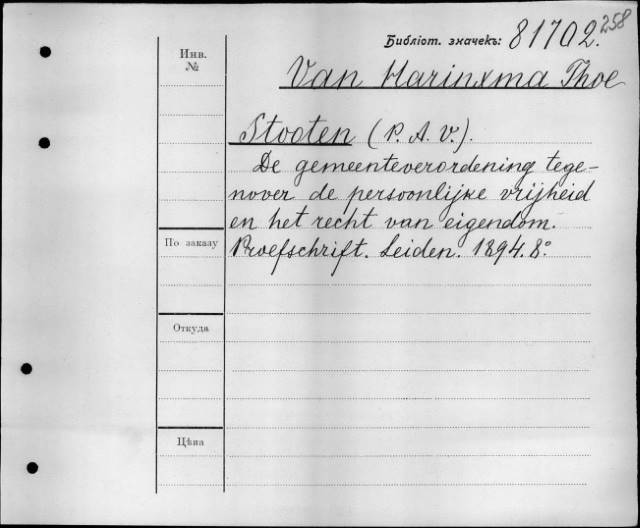 Библіот. значекъ: 81702. 258
Инв. №
Van Harinxma Thoe
Slooten (P. A. V.).
De gemeenteverordening tege-
nover de persoonlijke vrijheid
en het recht van eigendom.
Proefschrift. Leiden. 1894. 8º
По заказу
Откуда
Цѣна